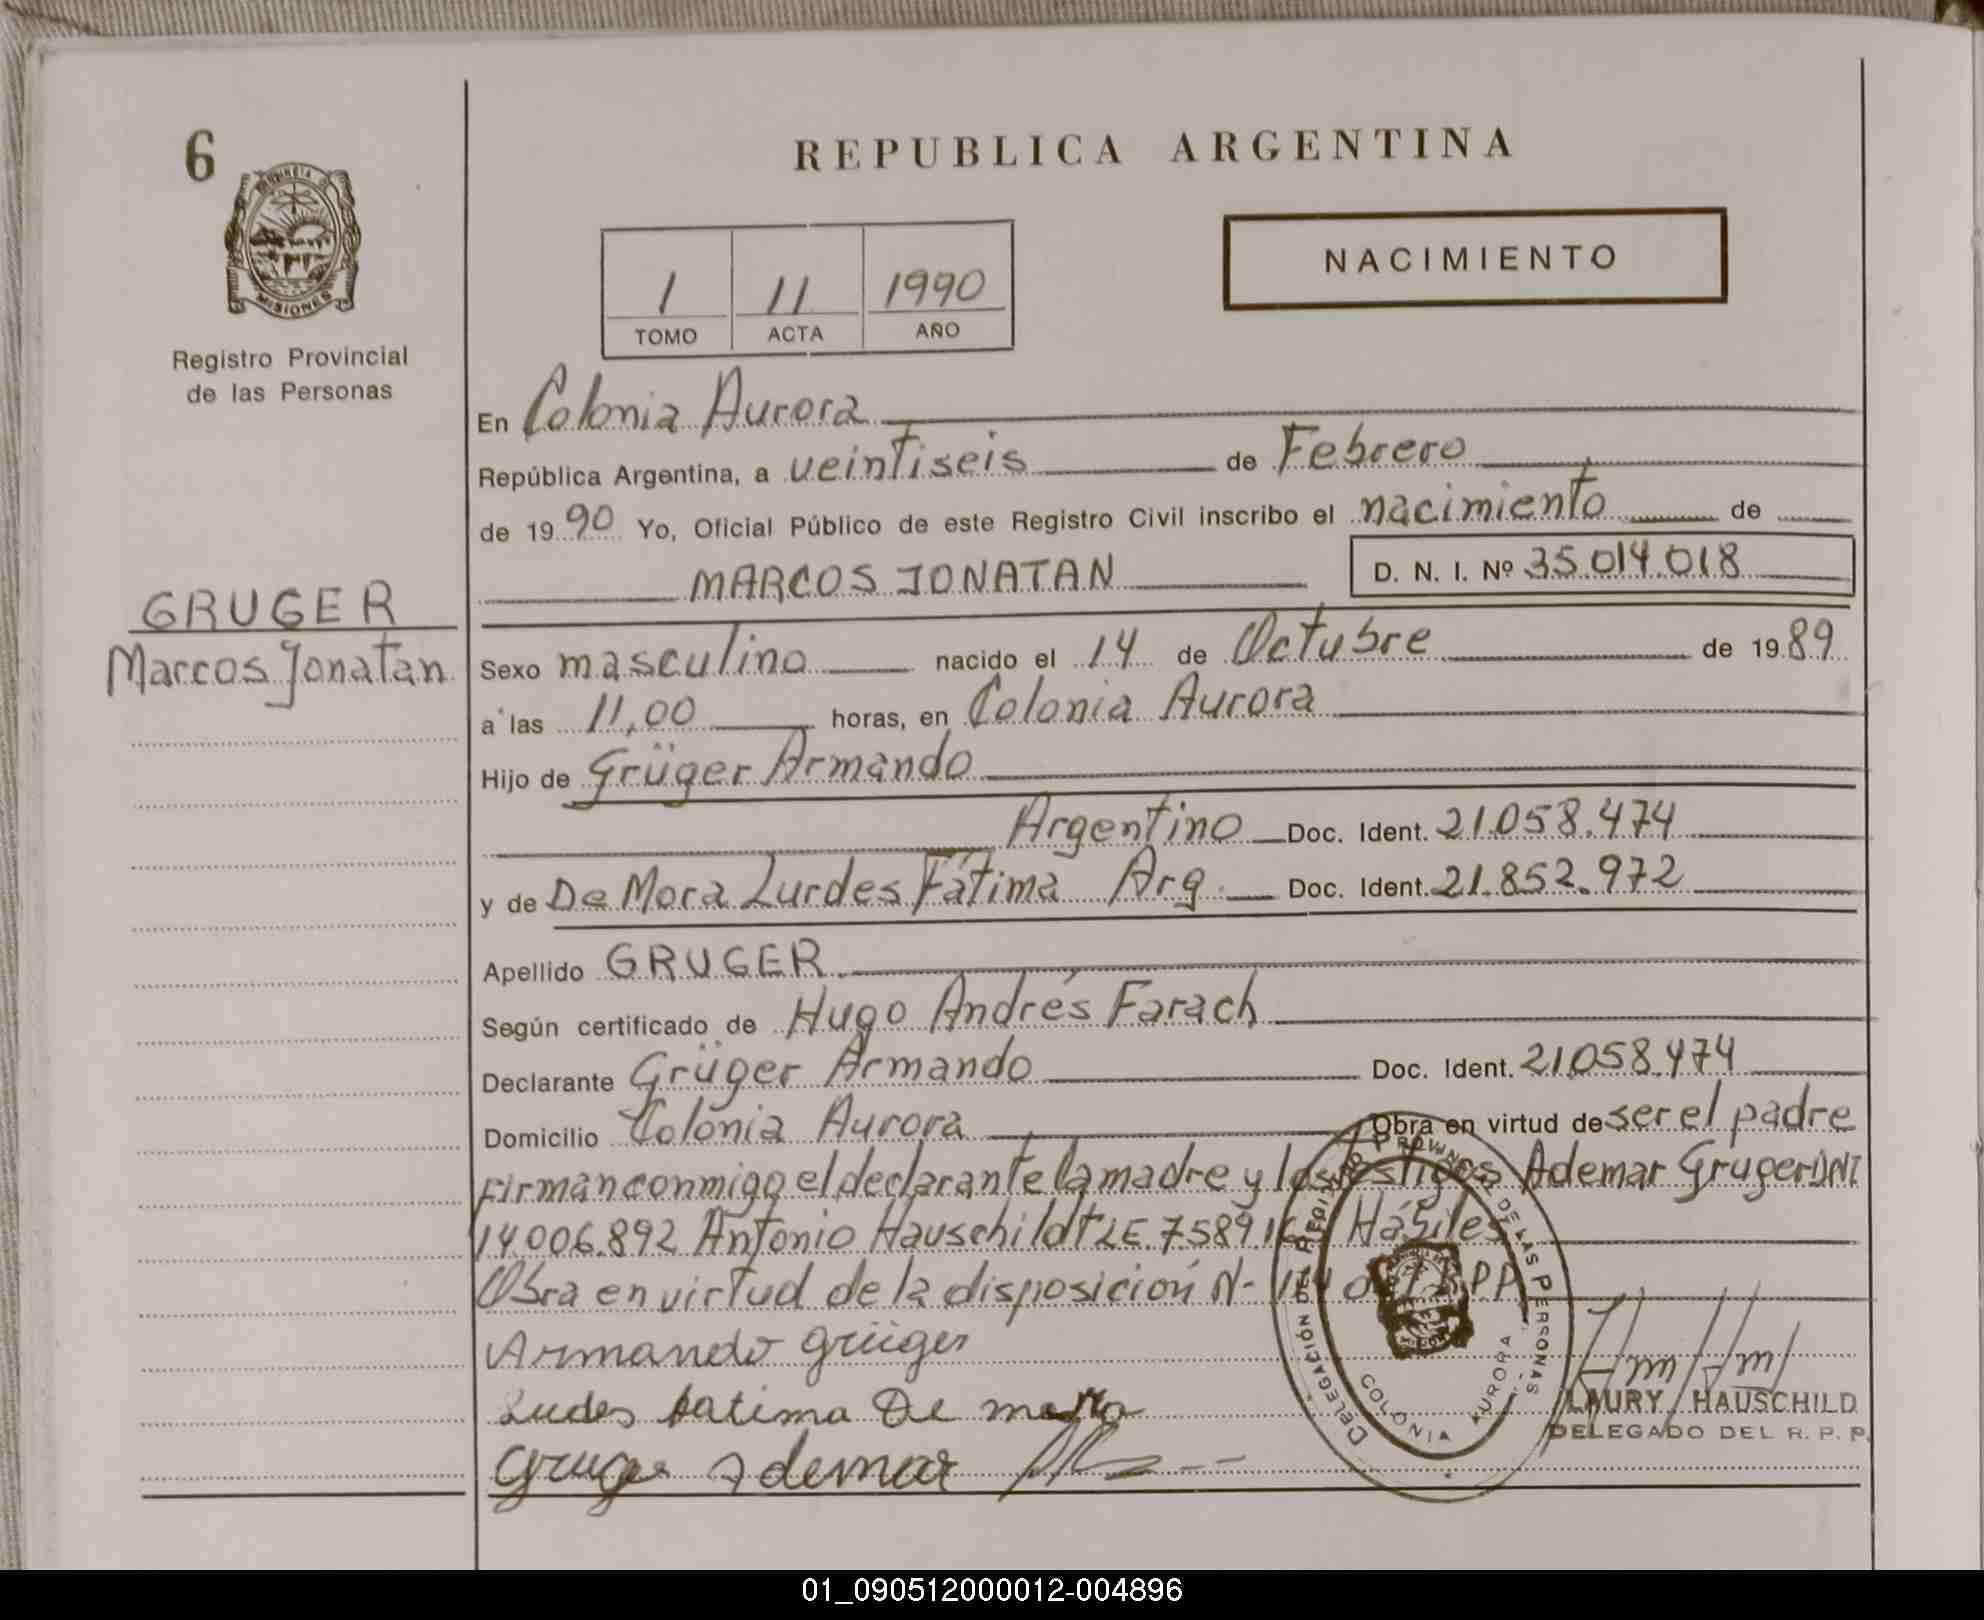 6
REPUBLICA ARGENTINA
PROVINCIA D
MISIONES
Registro Provincial
de las Personas
1 11 1990
TOMO ACTA AÑO
NACIMIENTO
En Colonia Aurora
República Argentina, a veintiseis de Febrero
de 1990 Yo, Oficial Público de este Registro Civil inscribo el nacimiento de
MARCOS JONATAN D. N. I. Nº 35.014.018
GRUGER
Marcos Jonatan
Sexo masculino nacido el 14 de Octubre de 1989
a las 11,00 horas, en Colonia Aurora
Hijo de Grüger Armando
Argentino Doc. Ident. 21.058.474
y de De Mora Lurdes Fátima Arg. Doc. Ident. 21.852.972
Apellido GRUGER
Según certificado de Hugo Andrés Farach
Declarante Grüger Armando Doc. Ident. 21.058.474
Domicilio Colonia Aurora Obra en virtud de ser el padre
Firman conmigo el declarante la madre y los testigos Ademar Gruger DNI
14.006.892 Antonio Hauschildt LE 7.589.16 Hábiles
Obra en virtud de la disposición N- 114 del RPP
Armando grüger
Ludes fatima De mora
gruger Ademar
DELEGACIÓN DEL REGISTRO PROVINCIAL DE LAS PERSONAS
COLONIA AURORA
LAURY HAUSCHILD
DELEGADO DEL R. P. P.
01_090512000012-004896